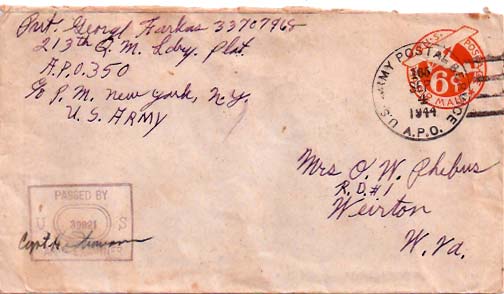 Pvt. Georg Farkas 33707968
213th Q. M. Ldry. Plat.
A.P.O. 350
c/o P. M. New York, N.Y.
U.S. ARMY
U.S. POSTAGE
6¢
AIR MAIL
U.S. ARMY POSTAL SERVICE
SEP
1944
A.P.O.
Mrs O. W. Phebus
R.D. #1
Weirton
W. Va.
PASSED BY
U S
ARMY EXAMINER
Capt